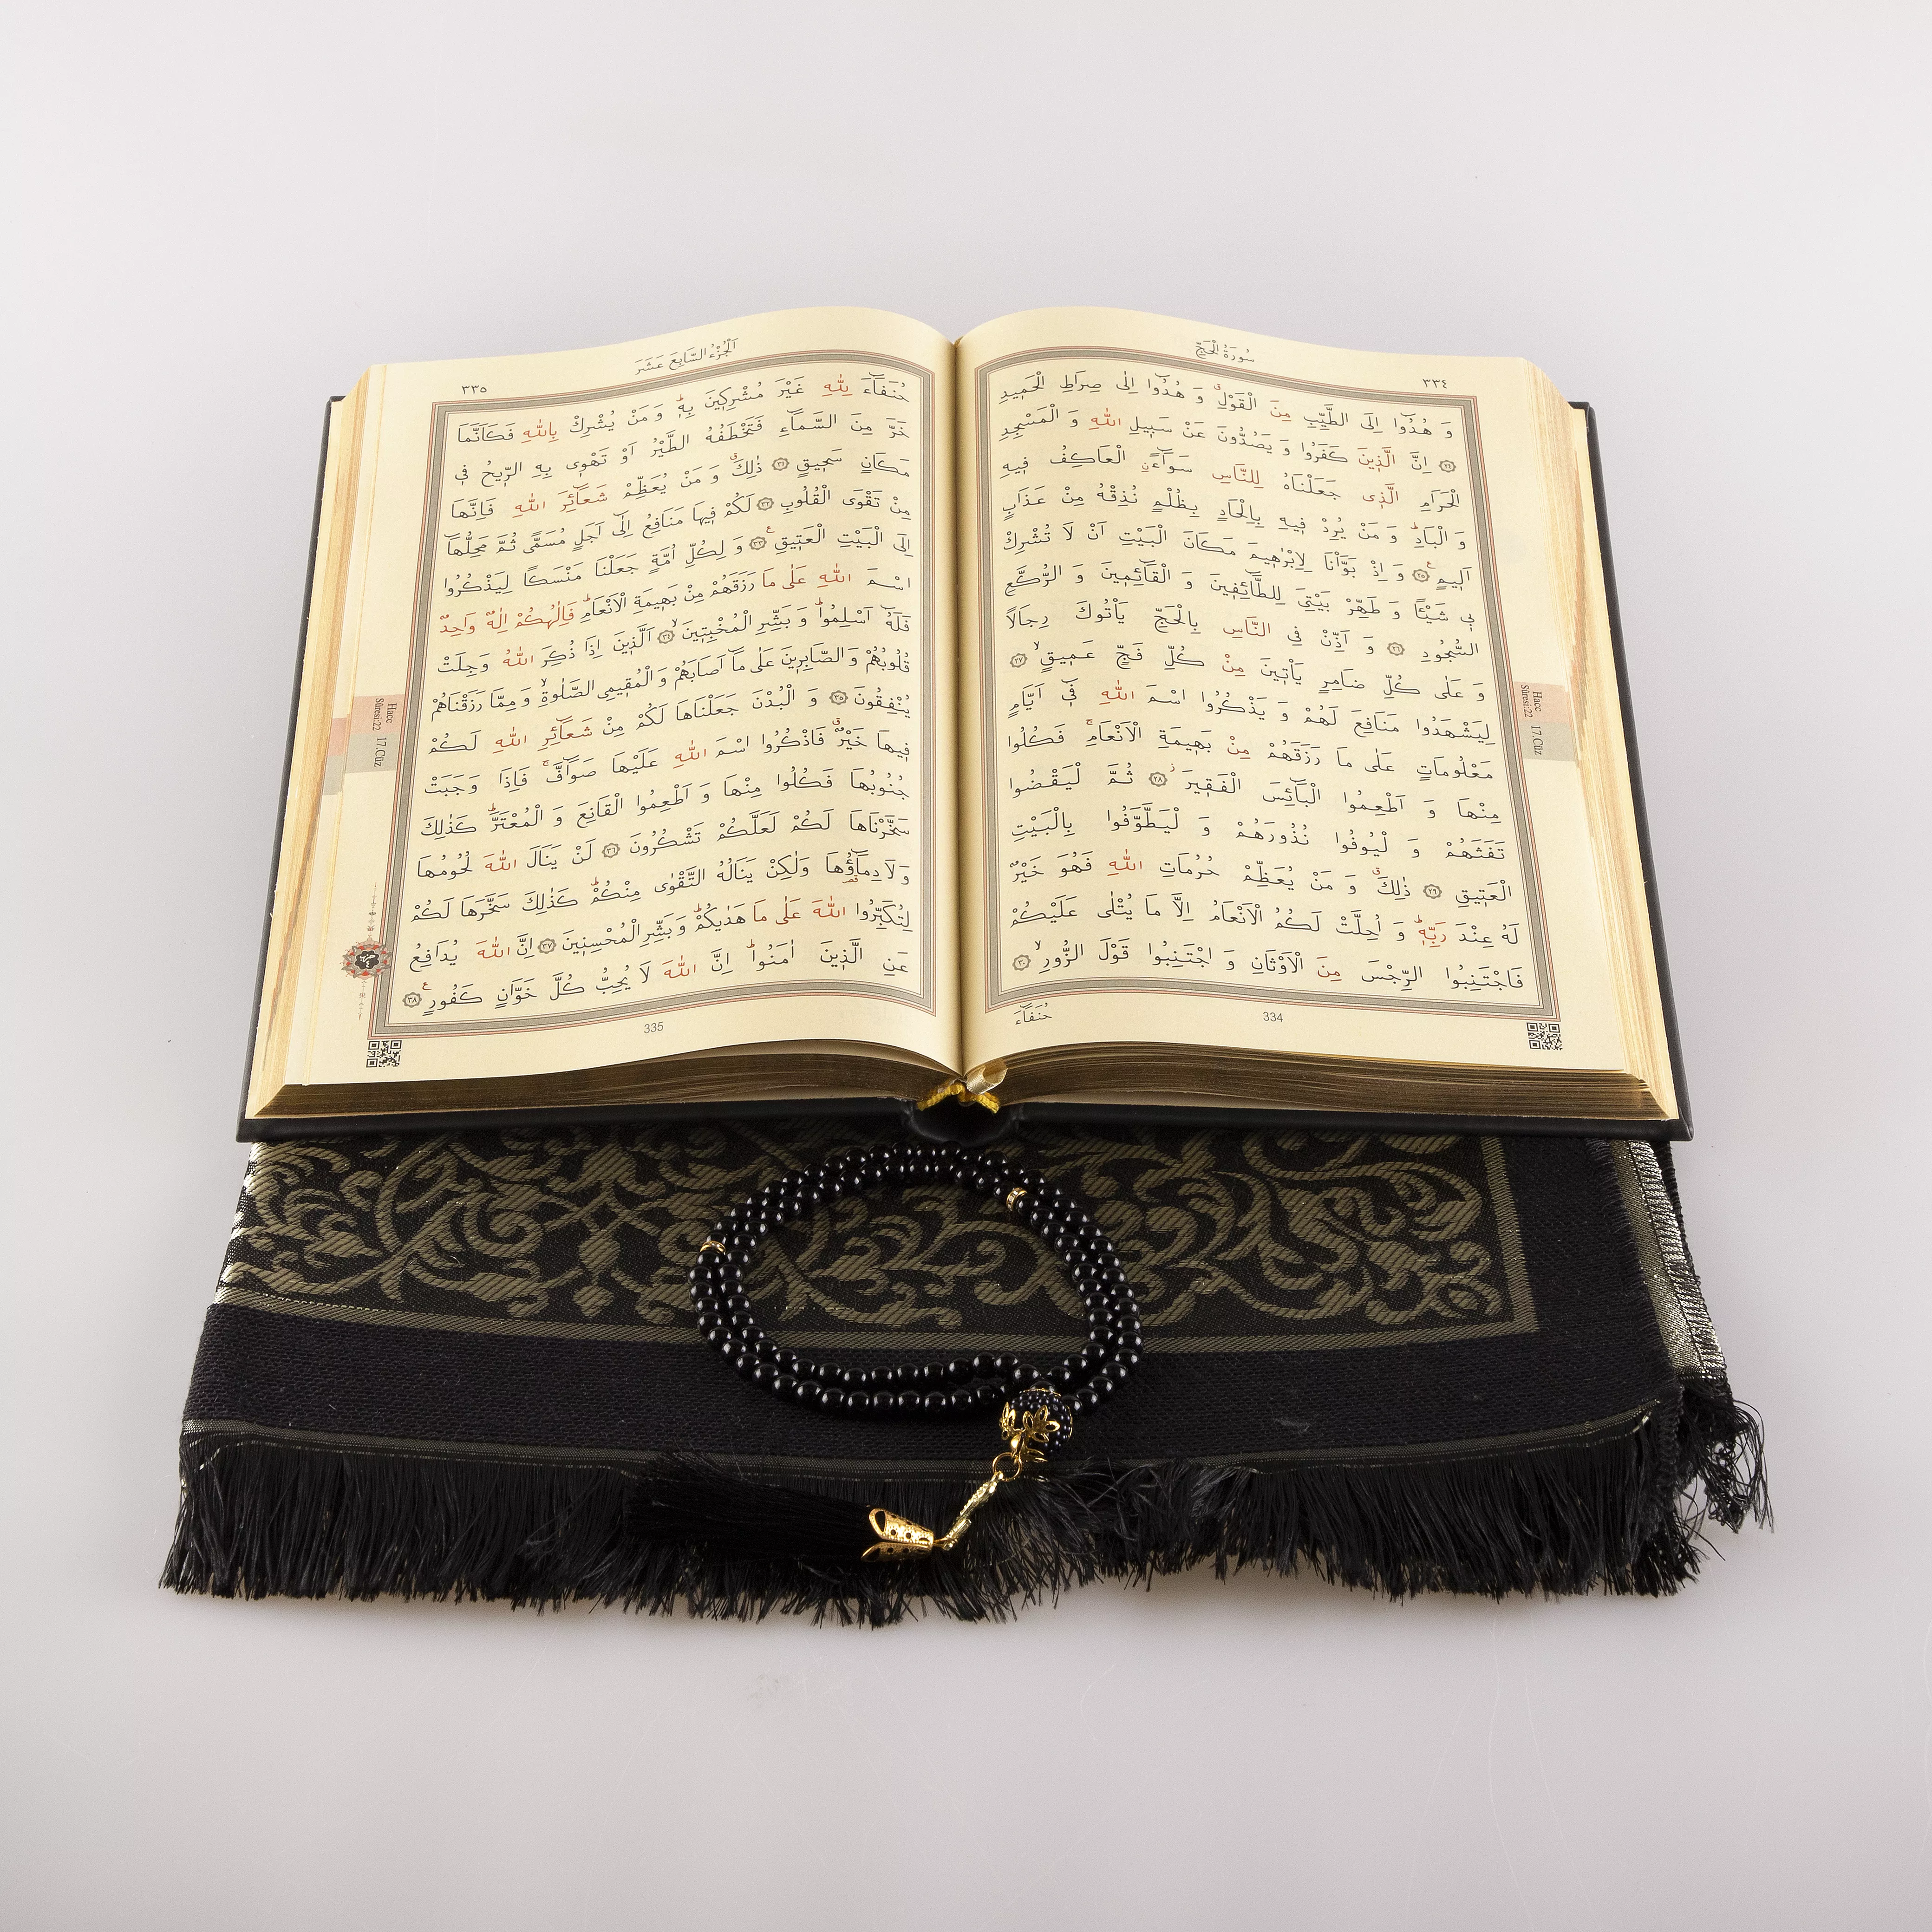 سُورَةُ الْحَجِّ
٣٣٤
وَ هُدُٓوا اِلَى الطَّيِّبِ مِنَ الْقَوْلِۚ وَ هُدُٓوا اِلٰى صِرَاطِ الْحَمٖيدِ
﴿٢٤﴾ اِنَّ الَّذٖينَ كَفَرُوا وَ يَصُدُّونَ عَنْ سَبٖيلِ اللّٰهِ وَ الْمَسْجِدِ
الْحَرَامِ الَّذٖى جَعَلْنَاهُ لِلنَّاسِ سَوَٓاءًۨ الْعَاكِفُ فٖيهِ
وَ الْبَادِؕ وَ مَنْ يُرِدْ فٖيهِ بِاِلْحَادٍ بِظُلْمٍ نُذِقْهُ مِنْ عَذَابٍ
اَلٖيمٍ ﴿٢٥﴾ وَ اِذْ بَوَّاْنَا لِاِبْرٰهٖيمَ مَكَانَ الْبَيْتِ اَنْ لَا تُشْرِكْ
بٖى شَيْـًٔا وَ طَهِّرْ بَيْتِىَ لِلطَّٓائِفٖينَ وَ الْقَٓائِمٖينَ وَ الرُّكَّعِ
السُّجُودِ ﴿٢٦﴾ وَ اَذِّنْ فِى النَّاسِ بِالْحَجِّ يَاْتُوكَ رِجَالًا
وَ عَلٰى كُلِّ ضَامِرٍ يَاْتٖينَ مِنْ كُلِّ فَجٍّ عَمٖيقٍۙ ﴿٢٧﴾
لِيَشْهَدُوا مَنَافِعَ لَهُمْ وَ يَذْكُرُوا اسْمَ اللّٰهِ فٖٓى اَيَّامٍ
مَعْلُومَاتٍ عَلٰى مَا رَزَقَهُمْ مِنْ بَهٖيمَةِ الْاَنْعَامِۚ فَكُلُوا
مِنْهَا وَ اَطْعِمُوا الْبَٓائِسَ الْفَقٖيرَؗ ﴿٢٨﴾ ثُمَّ لْيَقْضُوا
تَفَثَهُمْ وَ لْيُوفُوا نُذُورَهُمْ وَ لْيَطَّوَّفُوا بِالْبَيْتِ
الْعَتٖيقِ ﴿٢٩﴾ ذٰلِكَۗ وَ مَنْ يُعَظِّمْ حُرُمَاتِ اللّٰهِ فَهُوَ خَيْرٌ
لَهُ عِنْدَ رَبِّهٖؕ وَ اُحِلَّتْ لَكُمُ الْاَنْعَامُ اِلَّا مَا يُتْلٰى عَلَيْكُمْ
فَاجْتَنِبُوا الرِّجْسَ مِنَ الْاَوْثَانِ وَ اجْتَنِبُوا قَوْلَ الزُّورِۙ ﴿٣٠﴾
حُنَفَٓاءَ
334
Hacc 17.Cüz
Sûresi:22
اَلْجُزْءُ السَّابِعَ عَشَرَ
٣٣٥
حُنَفَٓاءَ لِلّٰهِ غَيْرَ مُشْرِكٖينَ بِهٖؕ وَ مَنْ يُشْرِكْ بِاللّٰهِ فَكَاَنَّمَا
خَرَّ مِنَ السَّمَٓاءِ فَتَخْطَفُهُ الطَّيْرُ اَوْ تَهْوٖى بِهِ الرّٖيحُ فٖى
مَكَانٍ سَحٖيقٍ ﴿٣١﴾ ذٰلِكَۗ وَ مَنْ يُعَظِّمْ شَعَٓائِرَ اللّٰهِ فَاِنَّهَا
مِنْ تَقْوَى الْقُلُوبِ ﴿٣٢﴾ لَكُمْ فٖيهَا مَنَافِعُ اِلٰٓى اَجَلٍ مُسَمًّى ثُمَّ مَحِلُّهَٓا
اِلَى الْبَيْتِ الْعَتٖيقِ ﴿٣٣﴾ وَ لِكُلِّ اُمَّةٍ جَعَلْنَا مَنْسَكًا لِيَذْكُرُوا
اسْمَ اللّٰهِ عَلٰى مَا رَزَقَهُمْ مِنْ بَهٖيمَةِ الْاَنْعَامِؕ فَاِلٰهُكُمْ اِلٰهٌ وَاحِدٌ
فَلَهُٓ اَسْلِمُواؕ وَ بَشِّرِ الْمُخْبِتٖينَۙ ﴿٣٤﴾ اَلَّذٖينَ اِذَا ذُكِرَ اللّٰهُ وَجِلَتْ
قُلُوبُهُمْ وَ الصَّابِرٖينَ عَلٰى مَٓا اَصَابَهُمْ وَ الْمُقٖيمِى الصَّلٰوةِۙ وَ مِمَّا رَزَقْنَاهُمْ
يُنْفِقُونَ ﴿٣٥﴾ وَ الْبُدْنَ جَعَلْنَاهَا لَكُمْ مِنْ شَعَٓائِرِ اللّٰهِ لَكُمْ
فٖيهَا خَيْرٌۗ فَاذْكُرُوا اسْمَ اللّٰهِ عَلَيْهَا صَوَٓافَّۚ فَاِذَا وَجَبَتْ
جُنُوبُهَا فَكُلُوا مِنْهَا وَ اَطْعِمُوا الْقَانِعَ وَ الْمُعْتَرَّؕ كَذٰلِكَ
سَخَّرْنَاهَا لَكُمْ لَعَلَّكُمْ تَشْكُرُونَ ﴿٣٦﴾ لَنْ يَنَالَ اللّٰهَ لُحُومُهَا
وَ لَا دِمَٓاؤُهَا وَلٰكِنْ يَنَالُهُ التَّقْوٰى مِنْكُمْؕ كَذٰلِكَ سَخَّرَهَا لَكُمْ
لِتُكَبِّرُوا اللّٰهَ عَلٰى مَا هَدٰيكُمْؕ وَ بَشِّرِ الْمُحْسِنٖينَ ﴿٣٧﴾ اِنَّ اللّٰهَ يُدَافِعُ
عَنِ الَّذٖينَ اٰمَنُواؕ اِنَّ اللّٰهَ لَا يُحِبُّ كُلَّ خَوَّانٍ كَفُورٍ ﴿٣٨﴾
335
Hacc 17.Cüz
Sûresi:22